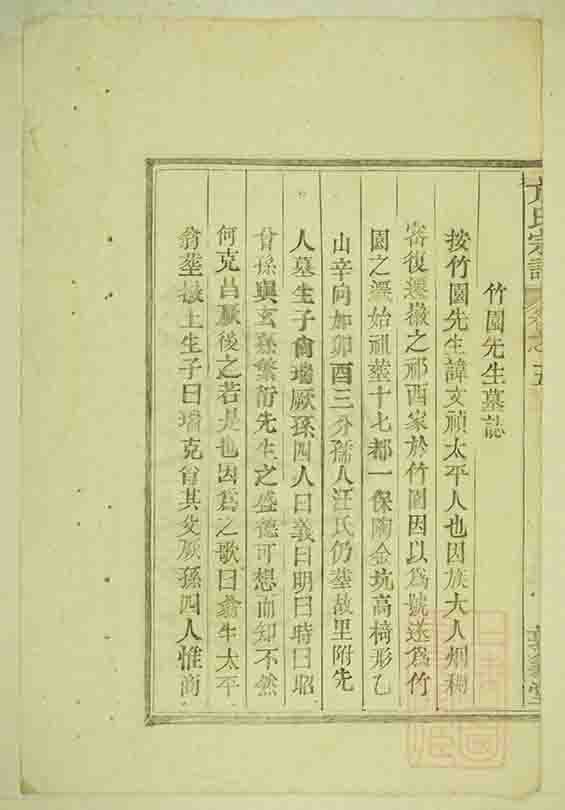 氏宗譜
竹園先生墓誌
按竹園先生諱文禎太平人也因族大人烟稠
密復遷徽之祁西家於竹園因以為號遂為竹
園之遷始祖塟十七都一保陶金坑高椅形乙
山辛向加卯酉三分孺人汪氏仍塟故里附先
人墓生子尚瑞厥孫四人曰義曰明曰時曰昭
曾孫與玄孫繁衍先生之盛德可想而知不然
何克昌厥後之若是也因爲之歌曰翁生太平
翁塟徽土生子曰瑞克肖其父厥孫四人惟尚